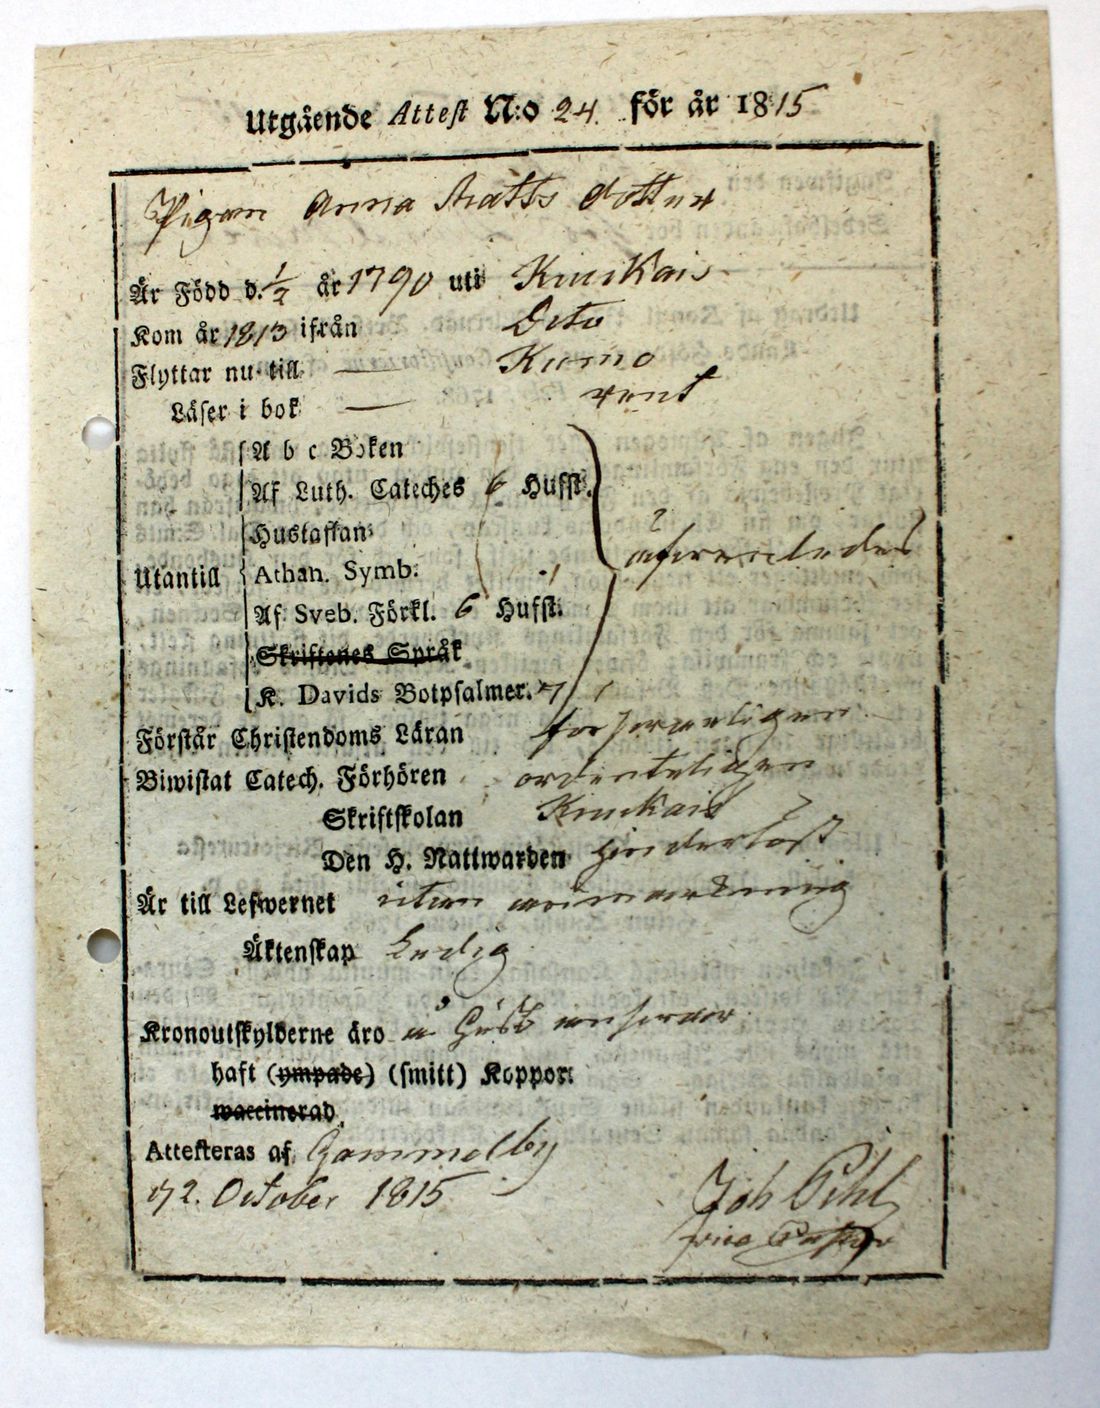 Utgående Attest N:o 24. för år 1815
Pigan Anna Matts dotter
Är Född d. 1/2 år 1790 uti
Kom år 1813 ifrån Dito
Flyttar nu till — Kumo
Läser i bok — rent
A b c Boken
Af Luth. Cateches 6 Hufst.
Hustaflan
Utantill Athan. Symb.
Af Sveb. Förkl. 6 Hufst.
Skriftenes Språk
K. Davids Botpsalmer. 7
Förstår Christendoms Läran försvarligen
Biwistat Catech. Förhören ordenteligen
Skriftskolan
Den H. Nattwarden hinderlöst
Är till Lefwernet utan anmärkning
Äktenskap Ledig
Kronoutskylderne äro
haft (ympade) (smitt) Koppor:
waccinerad.
Attesteras af Gammelby
2. October 1815
Joh Pihl
vice Pastor